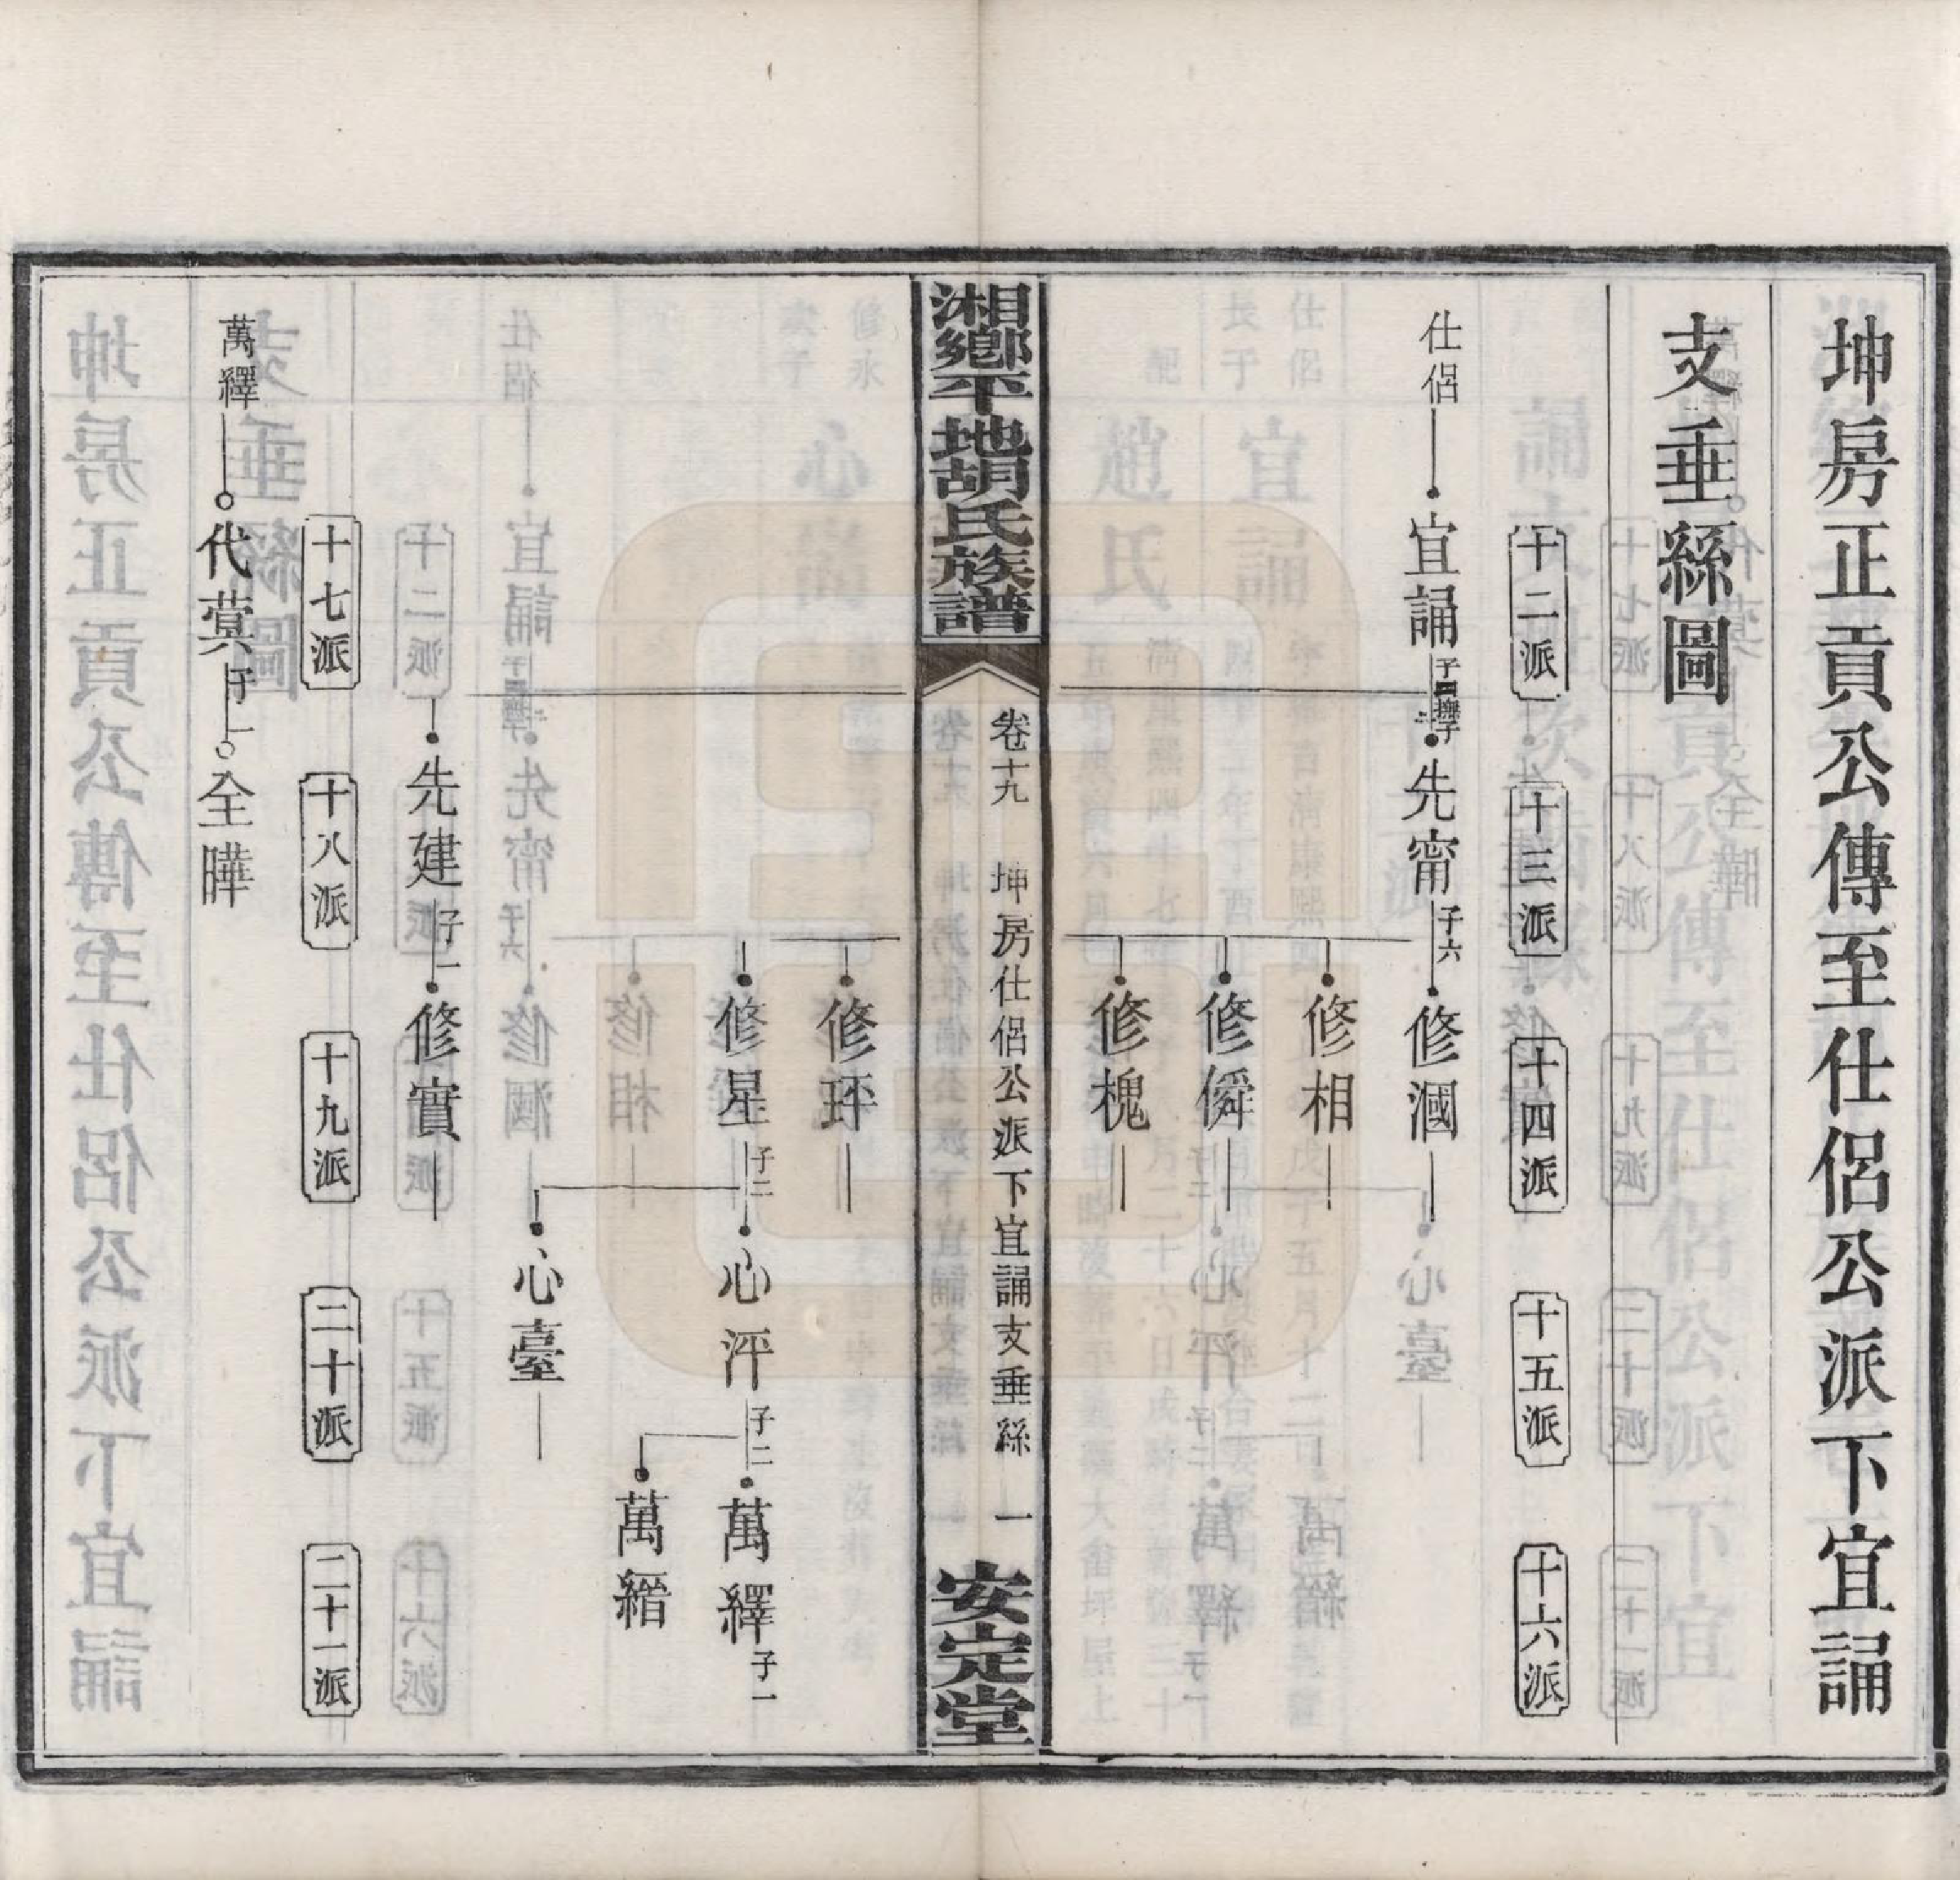 坤房正貢公傳至仕侶公派下宜誦
支垂絲圖
十二派
十三派
十四派
十五派
十六派
仕侶
宜誦
先甯 子六
修漍
修相
修僢
修槐
湘鄉平地胡氏族譜
卷十九 坤房仕侶公派下宜誦支垂絲 一
安定堂
修玶
修星 子二
心泙 子二
萬繹 子一
萬縉
心臺
先建 子一
修實
十七派
十八派
十九派
二十派
二十一派
萬繹
代蓂 子一
全曄